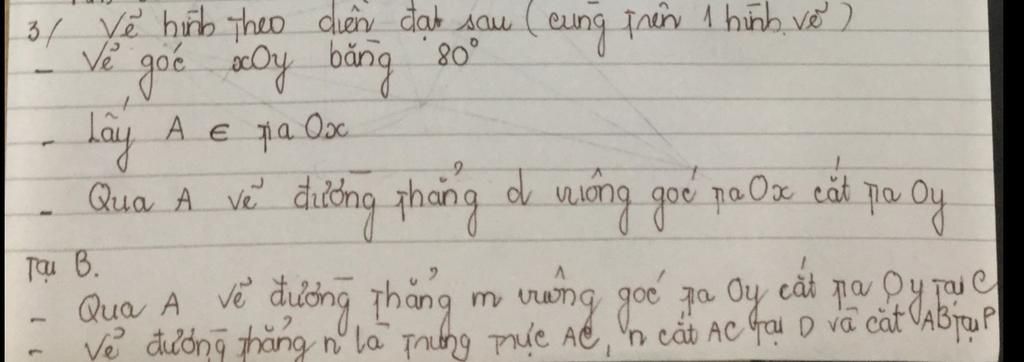 3/ Vẽ hình theo diễn đạt sau (cùng trên 1 hình vẽ)
- Vẽ góc xOy bằng 80°
- Lấy A ∈ tia Ox
- Qua A vẽ đường thẳng d vuông góc tia Ox cắt tia Oy
tại B.
- Qua A vẽ đường thẳng m vuông góc tia Oy cắt tia Oy tại C
- Vẽ đường thẳng n là trung trực AC, n cắt AC tại D và cắt AB tại P